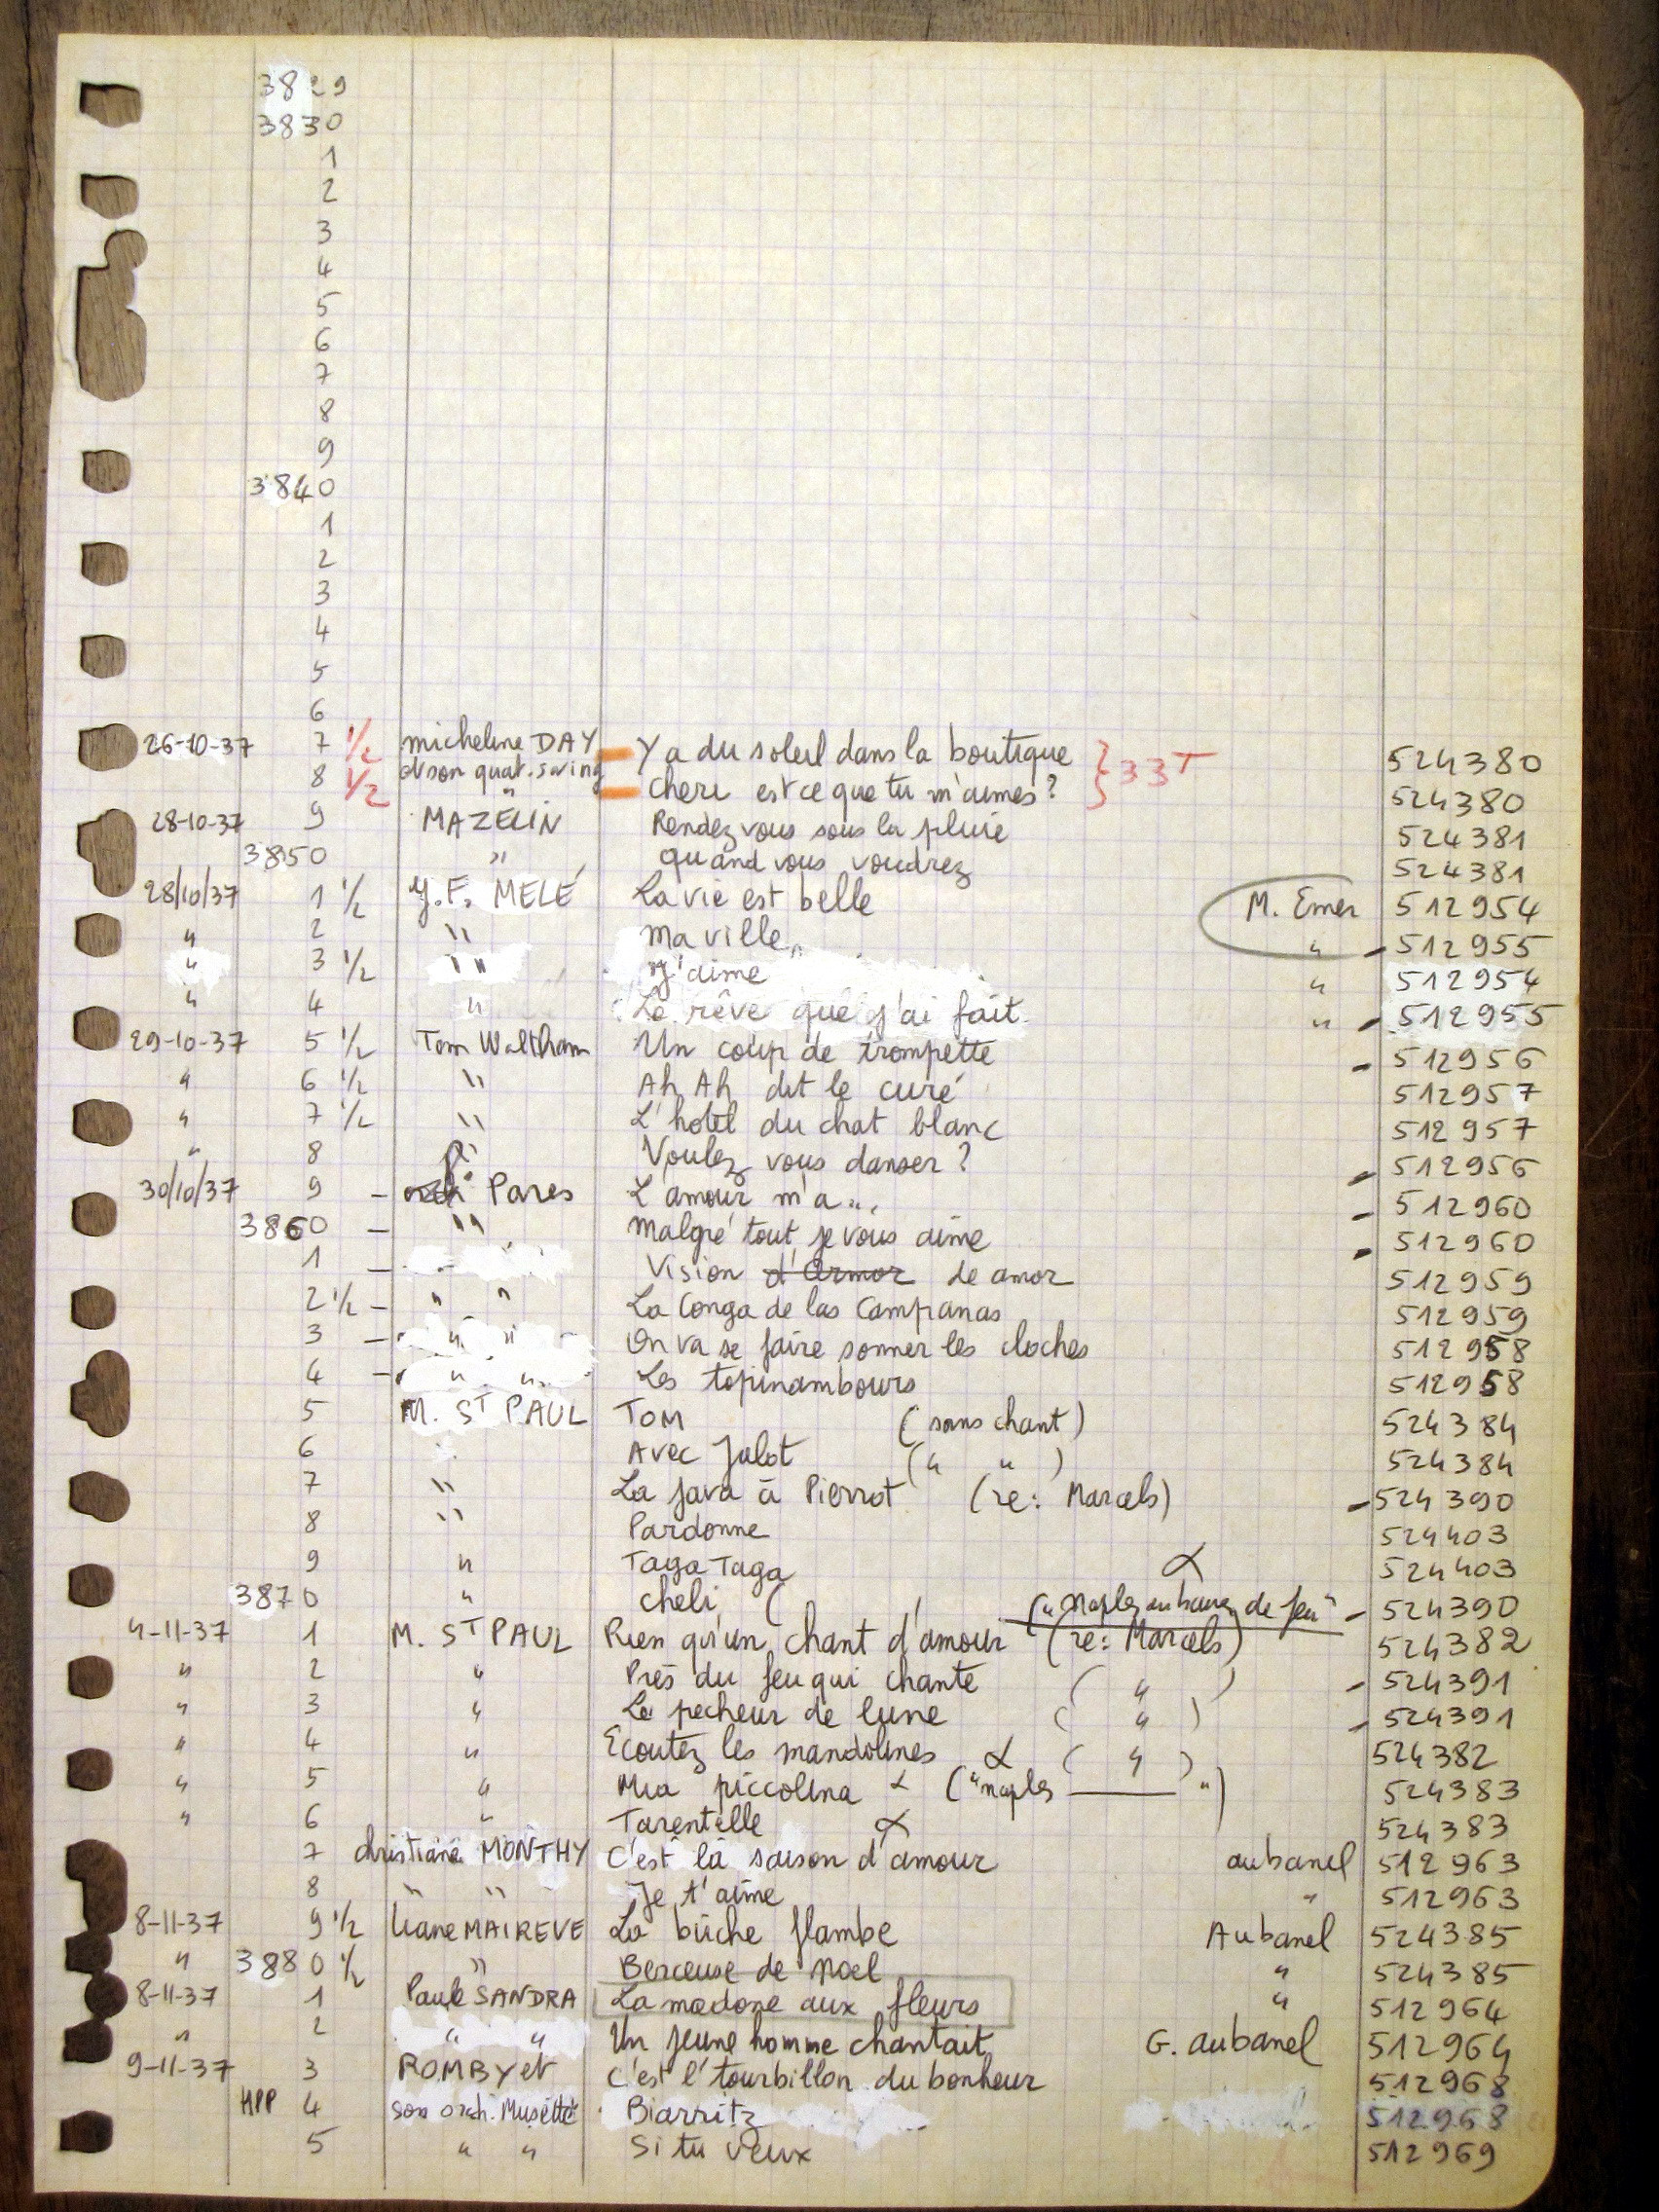 3829
3830
1
2
3
4
5
6
7
8
9
3840
1
2
3
4
5
6
26-10-37 7 1/2 micheline DAY Y a du soleil dans la boutique } 33T 524380
8 1/2 et son quat. swing cheri est ce que tu m'aimes? 524380
28-10-37 9 MAZELIN Rendez vous sous la pluie 524381
3850 " quand vous voudrez 524381
28/10/37 1 1/2 J.F. MELÉ La vie est belle M. Emer 512954
" 2 " ma ville " - 512955
" 3 1/2 " J'aime " 512954
" 4 " Le rêve que j'ai fait " - 512955
29-10-37 5 1/2 Tom Waltham Un coup de trompette - 512956
" 6 1/2 " Ah Ah dit le curé 512957
" 7 1/2 " L'hotel du chat blanc 512957
" 8 " Voulez vous danser? - 512956
30/10/37 9 - Pares L'amour m'a ... - 512960
3860 - " malgré tout je vous aime - 512960
1 - Vision d'Armor de amor 512959
2 1/2 - " " La Conga de las Campanas 512959
3 - " " On va se faire sonner les cloches 512958
4 - " " Les topinambours 512958
5 M. ST PAUL TOM (sans chant) 524384
6 Avec Julot (" ") 524384
7 " La Java à Pierrot (re: Marcels) - 524390
8 " Pardonne 524403
9 " Taga Taga α 524403
3870 " cheli ( ("Naples au baiser de feu" - 524390
4-11-37 1 M. ST PAUL Rien qu'un chant d'amour (re: Marcels) 524382
" 2 " Près du feu qui chante ( " ) - 524391
" 3 " Le pecheur de lune ( " ) - 524391
" 4 " Ecoutez les mandolines α ( " ) 524382
" 5 " Mia piccolina α ("naples ——— ") 524383
" 6 " Tarentelle α 524383
7 christiane MONTHY C'est la saison d'amour aubanel 512963
8 " " Je t'aime " 512963
8-11-37 9 1/2 Liane MAIREVE La bûche flambe Aubanel 524385
" 3880 1/2 " Berceuse de Noel " 524385
8-11-37 1 Paule SANDRA La madone aux fleurs " 512964
" 2 " " Un jeune homme chantait G. aubanel 512964
9-11-37 3 ROMBY et C'est l'tourbillon du bonheur 512968
HPP 4 son orch. Musette Biarritz 512968
5 " " Si tu veux 512969